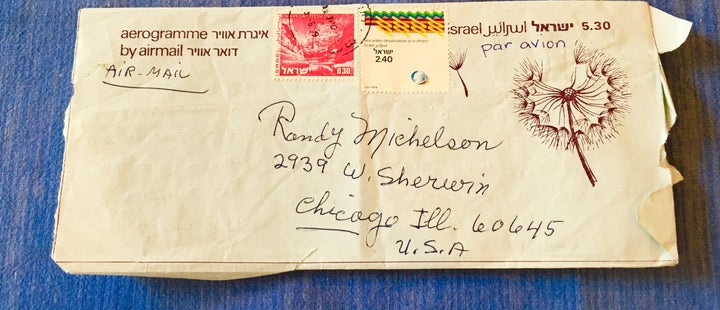 aerogramme איגרת אוויר
by airmail דואר אוויר
AIR-MAIL
ישראל
0.30
ישראל
2.40
israel اسرائيل ישראל 5.30
par avion
Randy Michelson
2939 W. Sherwin
Chicago Ill. 60645
U.S.A